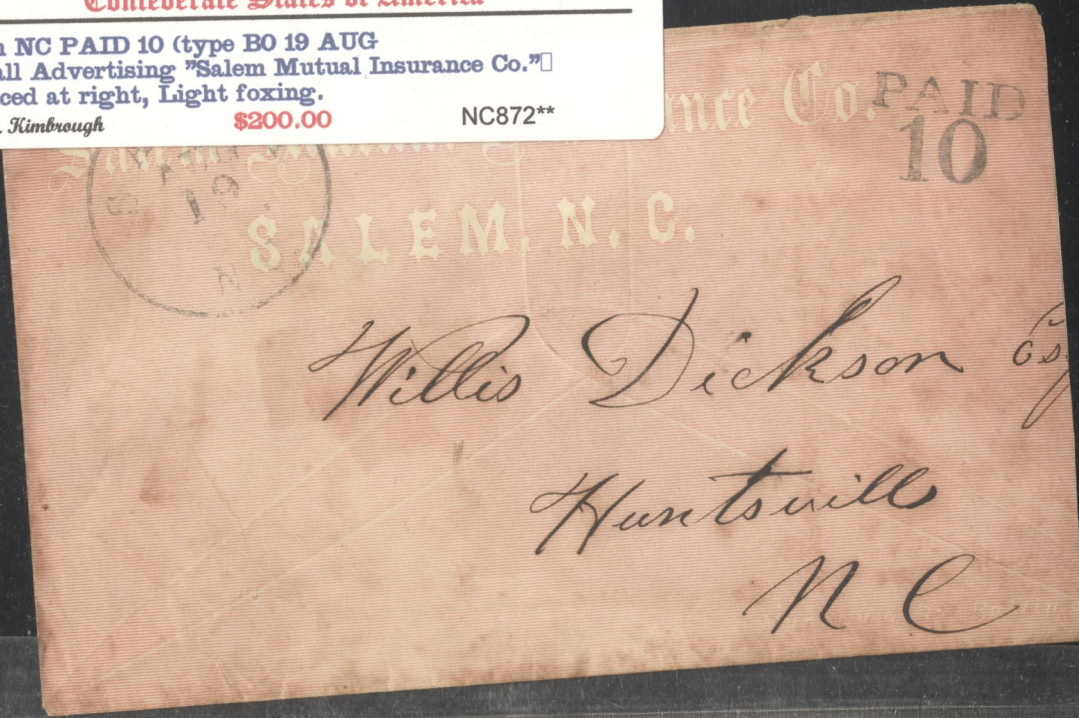 Confederate States of America
NC PAID 10 (type B0 19 AUG
all Advertising "Salem Mutual Insurance Co."
ced at right, Light foxing.
. Kimbrough $200.00 NC872**
Co.
PAID
10
19
N
SALEM, N. C.
Willis Dickson Esq
Huntsville
N C